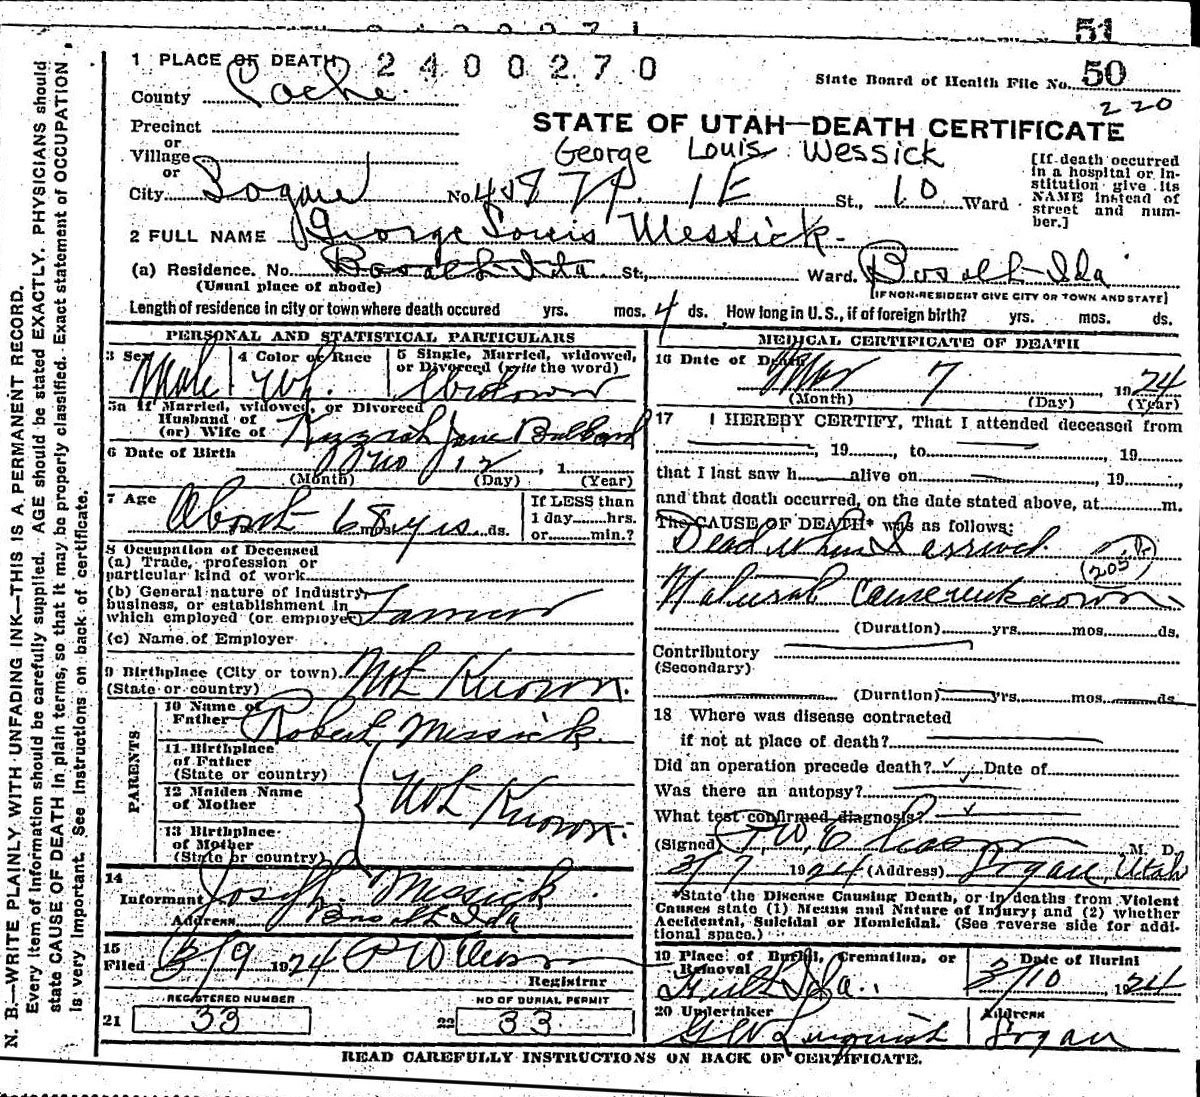 51
1 PLACE OF DEATH 2400270
State Board of Health File No. 50
220
County Cache
Precinct
or
Village
or
City Logan No. 1E St., 10 Ward
STATE OF UTAH—DEATH CERTIFICATE
George Louis Wessick
[If death occurred in a hospital or institution give its NAME instead of street and number.]
2 FULL NAME George Louis Messick
(a) Residence. No. Basalt Ida St., Ward. Basalt Ida
(Usual place of abode)
[IF NON-RESIDENT GIVE CITY OR TOWN AND STATE]
Length of residence in city or town where death occured yrs. mos. 4 ds. How long in U.S., if of foreign birth? yrs. mos. ds.
PERSONAL AND STATISTICAL PARTICULARS
3 Sex Male
4 Color or Race Wh.
5 Single, Married, widowed, or Divorced (write the word) Widower
5a If Married, widowed, or Divorced
Husband of
(or) Wife of Jane
6 Date of Birth 12, 1
(Month) (Day) (Year)
7 Age About 68 yrs mos. ds.
If LESS than
1 day hrs.
or min.?
8 Occupation of Deceased
(a) Trade, profession or
particular kind of work
(b) General nature of Industry,
business, or establishment in
which employed (or employer) Farmer
(c) Name of Employer
9 Birthplace (City or town) Not Known.
(State or country)
PARENTS
10 Name of
Father Robert Messick.
11 Birthplace
of Father
(State or country)
12 Maiden Name
of Mother Not Known.
13 Birthplace
of Mother
(State or country)
14
Informant Joseph Messick
Address Basalt Ida
15
Filed 3/9 1924
Registrar
REGISTERED NUMBER
21 33
NO OF BURIAL PERMIT
22 33
MEDICAL CERTIFICATE OF DEATH
16 Date of Death Mar 7, 1924
(Month) (Day) (Year)
17 I HEREBY CERTIFY, That I attended deceased from
, 19 , to , 19
that I last saw h alive on , 19 ,
and that death occurred, on the date stated above, at m.
The CAUSE OF DEATH* was as follows:
Dead when I arrived.
(205b)
Natural cause unknown
(Duration) yrs. mos. ds.
Contributory
(Secondary)
(Duration) yrs. mos. ds.
18 Where was disease contracted
if not at place of death?
Did an operation precede death? Date of
Was there an autopsy?
What test confirmed diagnosis?
(Signed) M. D.
3/7 1924 (Address) Logan, Utah
*State the Disease Causing Death, or in deaths from Violent
Causes state (1) Means and Nature of Injury; and (2) whether
Accidental, Suicidal or Homicidal. (See reverse side for addi-
tional space.)
19 Place of Burial, Cremation, or
Removal Firth Ida.
Date of Burial
3/10, 1924
20 Undertaker
G W Lunquist
Address
Logan
READ CAREFULLY INSTRUCTIONS ON BACK OF CERTIFICATE.
N. B.—WRITE PLAINLY WITH UNFADING INK—THIS IS A PERMANENT RECORD.
Every item of information should be carefully supplied. AGE should be stated EXACTLY. PHYSICIANS should
state CAUSE OF DEATH in plain terms, so that it may be properly classified. Exact statement of OCCUPATION
is very important. See instructions on back of certificate.